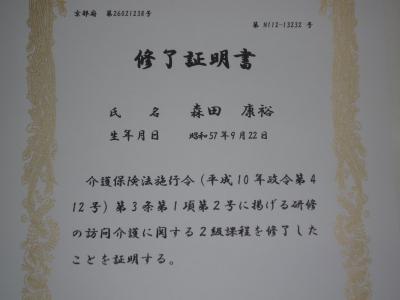 京都府　第26021238号
第 N112-13232 号
修了証明書
氏　名　森田　康裕
生年月日　昭和57年9月22日
介護保険法施行令（平成10年政令第4
12号）第3条第1項第2号に掲げる研修
の訪問介護に関する2級課程を修了した
ことを証明する。